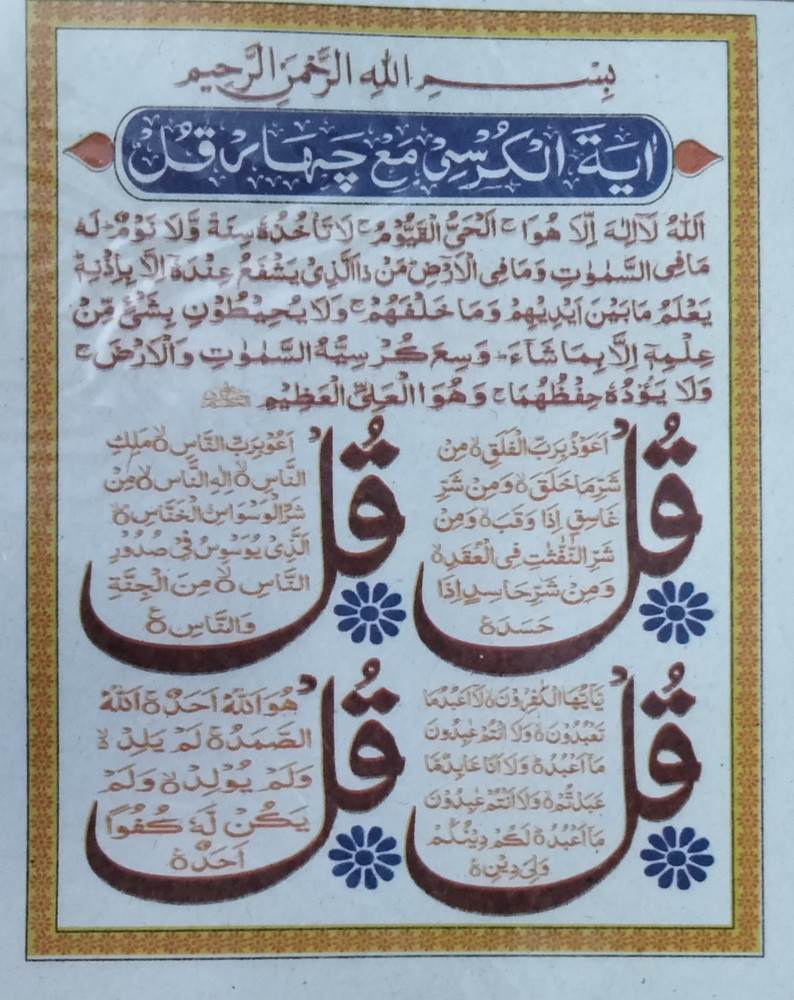 بِسْمِ اللهِ الرَّحْمٰنِ الرَّحِيمِ
اٰيَةُ الْكُرْسِيْ مَعْ چَهَار قُلْ
اَللّٰهُ لَاۤ اِلٰهَ اِلَّا هُوَا ۚ اَلْحَيُّ الْقَيُّوْمُ ۚ لَا تَأْخُذُهٗ سِنَةٌ وَّلَا نَوْمٌ ؕ لَهٗ
مَا فِى السَّمٰوٰتِ وَمَا فِى الْاَرْضِ ؕ مَنْ ذَا الَّذِىْ يَشْفَعُ عِنْدَهٗٓ اِلَّا بِاِذْنِهٖ ؕ
يَعْلَمُ مَا بَيْنَ اَيْدِيْهِمْ وَمَا خَلْفَهُمْ ۚ وَلَا يُحِيْطُوْنَ بِشَىْءٍ مِّنْ
عِلْمِهٖٓ اِلَّا بِمَا شَآءَ ؕ وَسِعَ كُرْسِيُّهُ السَّمٰوٰتِ وَالْاَرْضَ ۚ
وَلَا يَـُٔوْدُهٗ حِفْظُهُمَا ۚ وَهُوَا الْعَلِىُّ الْعَظِيْمِ
قُلْ
اَعُوْذُ بِرَبِّ الْفَلَقِ ۙ مِنْ
شَرِّ مَا خَلَقَ ۙ وَمِنْ شَرِّ
غَاسِقٍ اِذَا وَقَبَ ۙ وَمِنْ
شَرِّ النَّفّٰثٰتِ فِى الْعُقَدِ ۙ
وَمِنْ شَرِّ حَاسِدٍ اِذَا
حَسَدَ ۠
قُلْ
اَعُوْبِرَبِّ النَّاسِ ۙ مَلِكِ
النَّاسِ ۙ اِلٰهِ النَّاسِ ۙ مِنْ
شَرِّ الْوَسْوَاسِ الْخَنَّاسِ ۙ
الَّذِىْ يُوَسْوِسُ فِىْ صُدُوْرِ
النَّاسِ ۙ مِنَ الْجِنَّةِ
وَالنَّاسِ ۠
قُلْ
يٰۤاَيُّهَا الْكٰفِرُوْنَ ۙ لَا اَعْبُدُ مَا
تَعْبُدُوْنَ ۙ وَلَا اَنْتُمْ عٰبِدُوْنَ
مَاۤ اَعْبُدُ ۚ وَلَا اَنَا عَابِدٌ مَّا
عَبَدْتُّمْ ۙ وَلَا اَنْتُمْ عٰبِدُوْنَ
مَاۤ اَعْبُدُ ؕ لَكُمْ دِيْنُكُمْ
وَلِىَ دِيْنِ ۠
قُلْ
هُوَ اللّٰهُ اَحَدٌ ۚ اَللّٰهُ
الصَّمَدُ ۚ لَمْ يَلِدْ ۙ
وَلَمْ يُوْلَدْ ۙ وَلَمْ
يَكُنْ لَّهٗ كُفُوًا
اَحَدٌ ۠